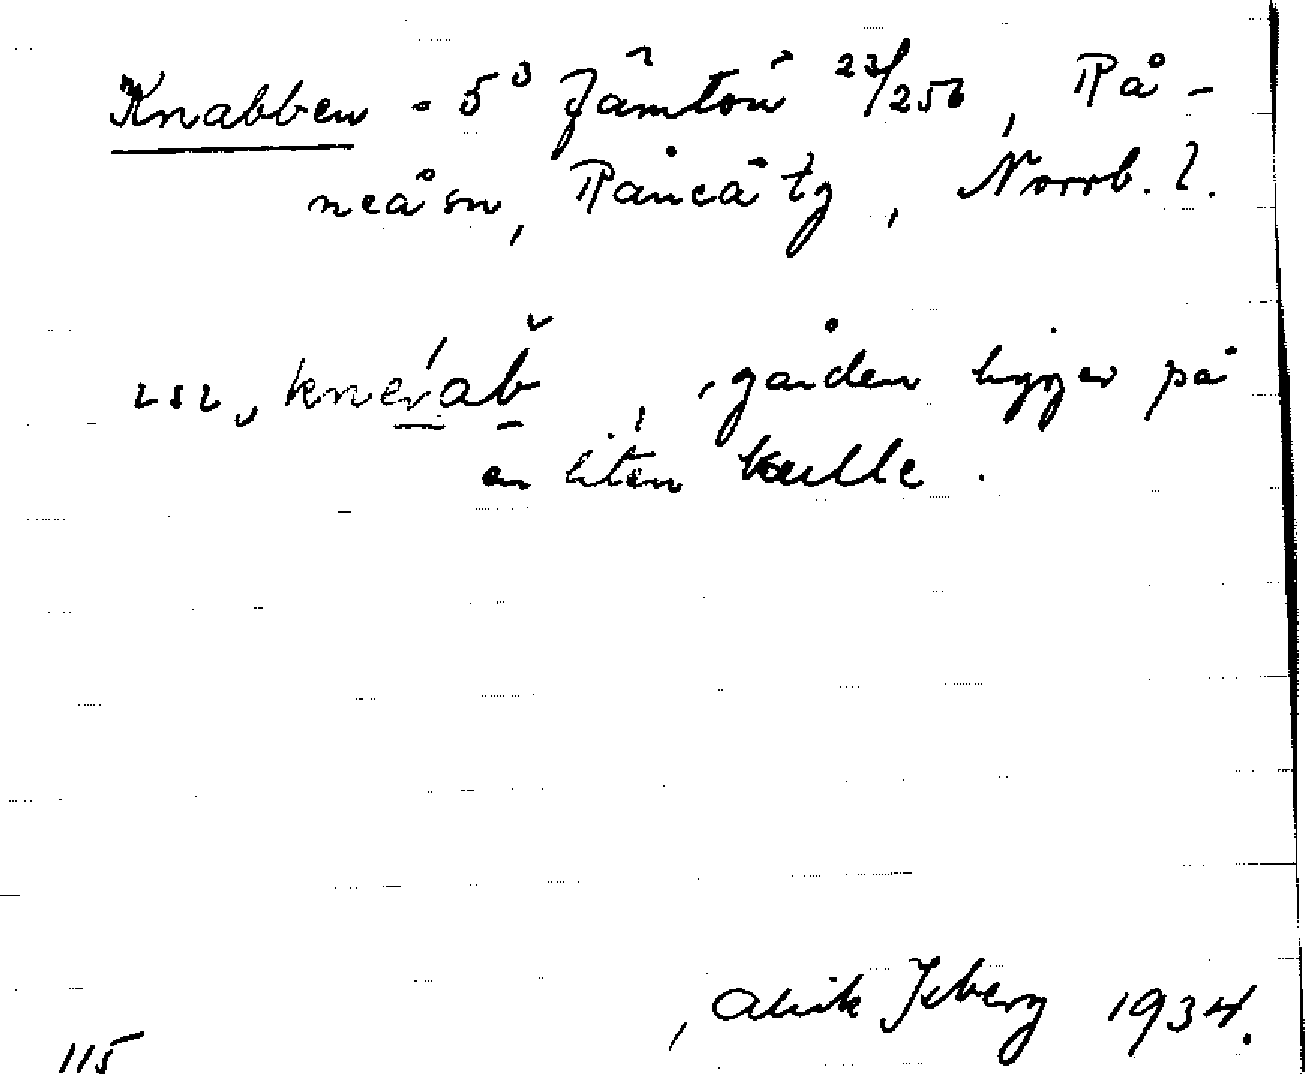 Knabben - 5³ Jämtön 23/256, Rå-
neå sn, Råneå tg, Norrb. l.
gården ligger på
en liten kulle.
Alrik Isberg 1934.
115